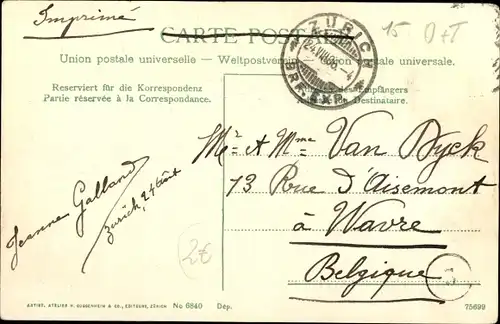 Imprimé
CARTE POSTALE
15 D+T
ZÜRICH
24.VIII.09.-4
BRF. EXP.
Union postale universelle. — Weltpostverein. — Union postale universale.
Reserviert für die Korrespondenz
Partie réservée à la Correspondance.
des Empfängers
Destinataire.
Mr et Mme Van Dyck
73 Rue d'Aisemont
à Wavre
Belgique
Jeanne Galland
Zurich, 24 Août
2€
ARTIST. ATELIER H. GUGGENHEIM & CO., EDITEURS, ZÜRICH
No 6840
Dép.
75699